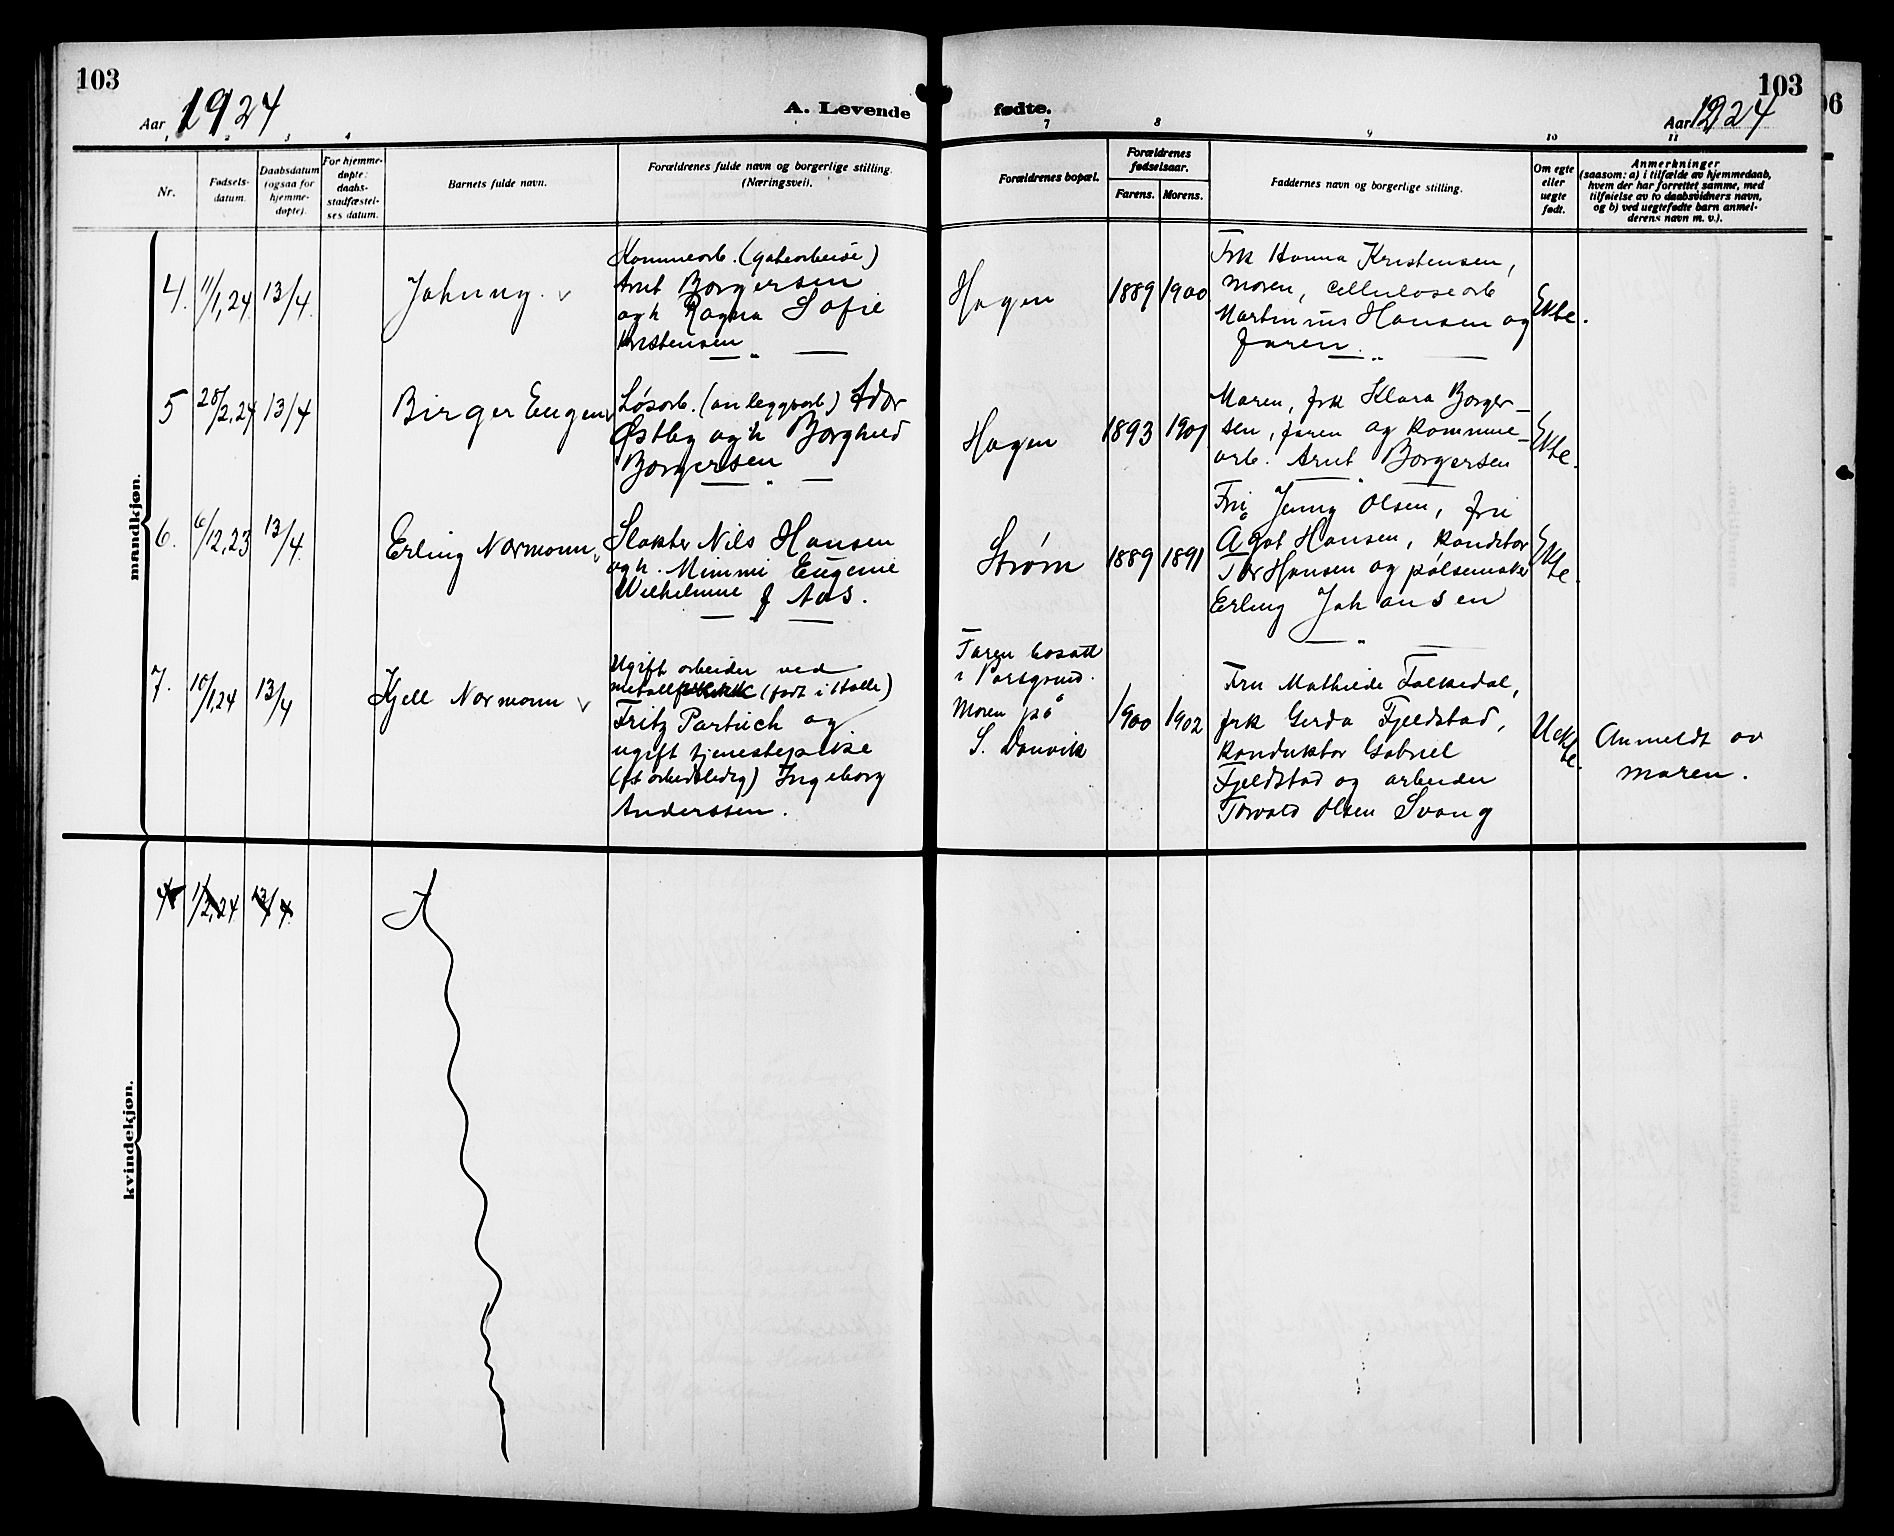 103
Aar 1924
A. Levende
fødte.
103
Aar 1924
1 2 3 4
7 8 9 10 11
Nr.
Fødsels-
datum.
Daabsdatum
(ogsaa for
hjemme-
døpte).
For hjemme-
døpte:
daabs-
stadfæstel-
ses datum.
Barnets fulde navn.
Forældrenes fulde navn og borgerlige stilling.
(Næringsvei).
Forældrenes bopæl.
Forældrenes
fødselsaar.
Farens. Morens.
Faddernes navn og borgerlige stilling.
Om egte
eller
uegte
født.
Anmerkninger
(saasom: a) i tilfælde av hjemmedaab,
hvem der har forrettet samme, med
tilføielse av to daabsvidners navn,
og b) ved uegtefødte barn anmel-
derens navn m. v.).
mandkjøn.
4. 11/1, 24. 13/4.
Johnny.
Kommearb. (gatearbeide)
Arnt Borgersen
og h Ragna Sofie
Kristensen
Hagen
1889 1900
Frk Hanna Kristensen,
moren, cellulosearb
Martinius Hansen og
faren.
Ekte.
5 28/2, 24 13/4
Birger Eugen
Løsarb. (anleggsarb)
Østby og h Borghild
Borgersen
Hagen
1893 1901
Moren, frk Klara Borger-
sen, faren og komme-
arb. Arnt Borgersen
Ekte.
6. 6/12, 23 13/4.
Erling Normann
Slakter Nils Hansen
og h. Mimmi Eugenie
Wilhelmine f Aas.
Strøm
1889 1891
Fru Jenny Olsen, fru
Ågot Hansen, konditor
Tor Hansen og pølsemaker
Erling Johansen
Ekte.
7. 10/1, 24 13/4
Kjell Normann
Ugift arbeider ved
metall (født i Halle)
Fritz Partuch og
ugift tjenestepike
(ft arbeidsledig) Ingeborg
Anderssen.
Faren bosatt
i Porsgrund.
Moren på
S. Danvik
1900 1902
Fru Mathilde Falkedal,
frk Gerda Fjeldstad,
konduktør Gabriel
Fjeldstad og arbeider
Torvald Olsen Svang
Uekte.
Anmeldt av
moren.
kvindekjøn.
4 1/2, 24 13/4.
A